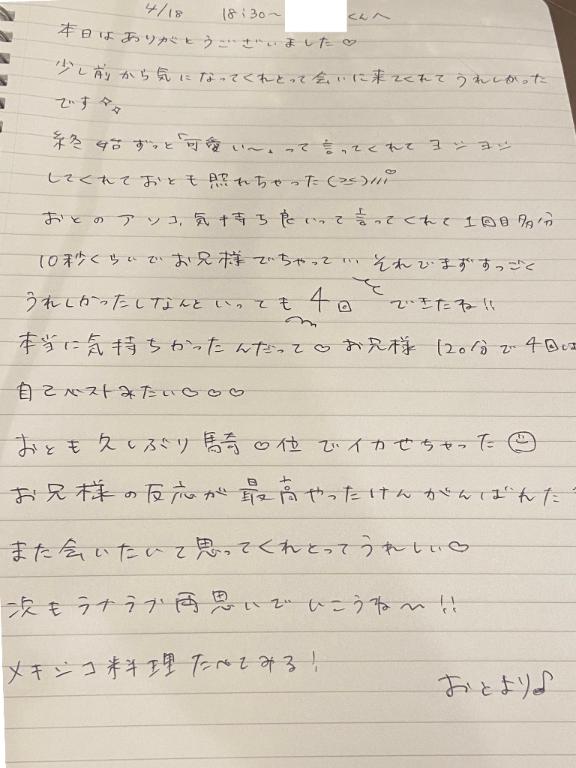 4/18 18:30〜 くんへ
本日はありがとうございました♡
少し前から気になってくれとって会いに来てくれてうれしかった
です✧✧
終始ずっと「可愛い〜」って言ってくれてヨシヨシ
してくれておとも照れちゃった(><)///♡
おとのアソコ、気持ち良いって言ってくれて1回目多分
10秒くらいでお兄様でちゃって... それでまずすっごく
うれしかったしなんといっても4回できたね!!
本当に気持ちかったんだって♡お兄様120分で4回は
自己ベストみたい♡♡♡
おとも久しぶり騎♡位でイカせちゃった☺
お兄様の反応が最高やったけんがんばれた
また会いたいて思ってくれとってうれしい♡
次もラブラブ両思いでいこうね〜!!
メキシコ料理たべてみる!
おとより♪